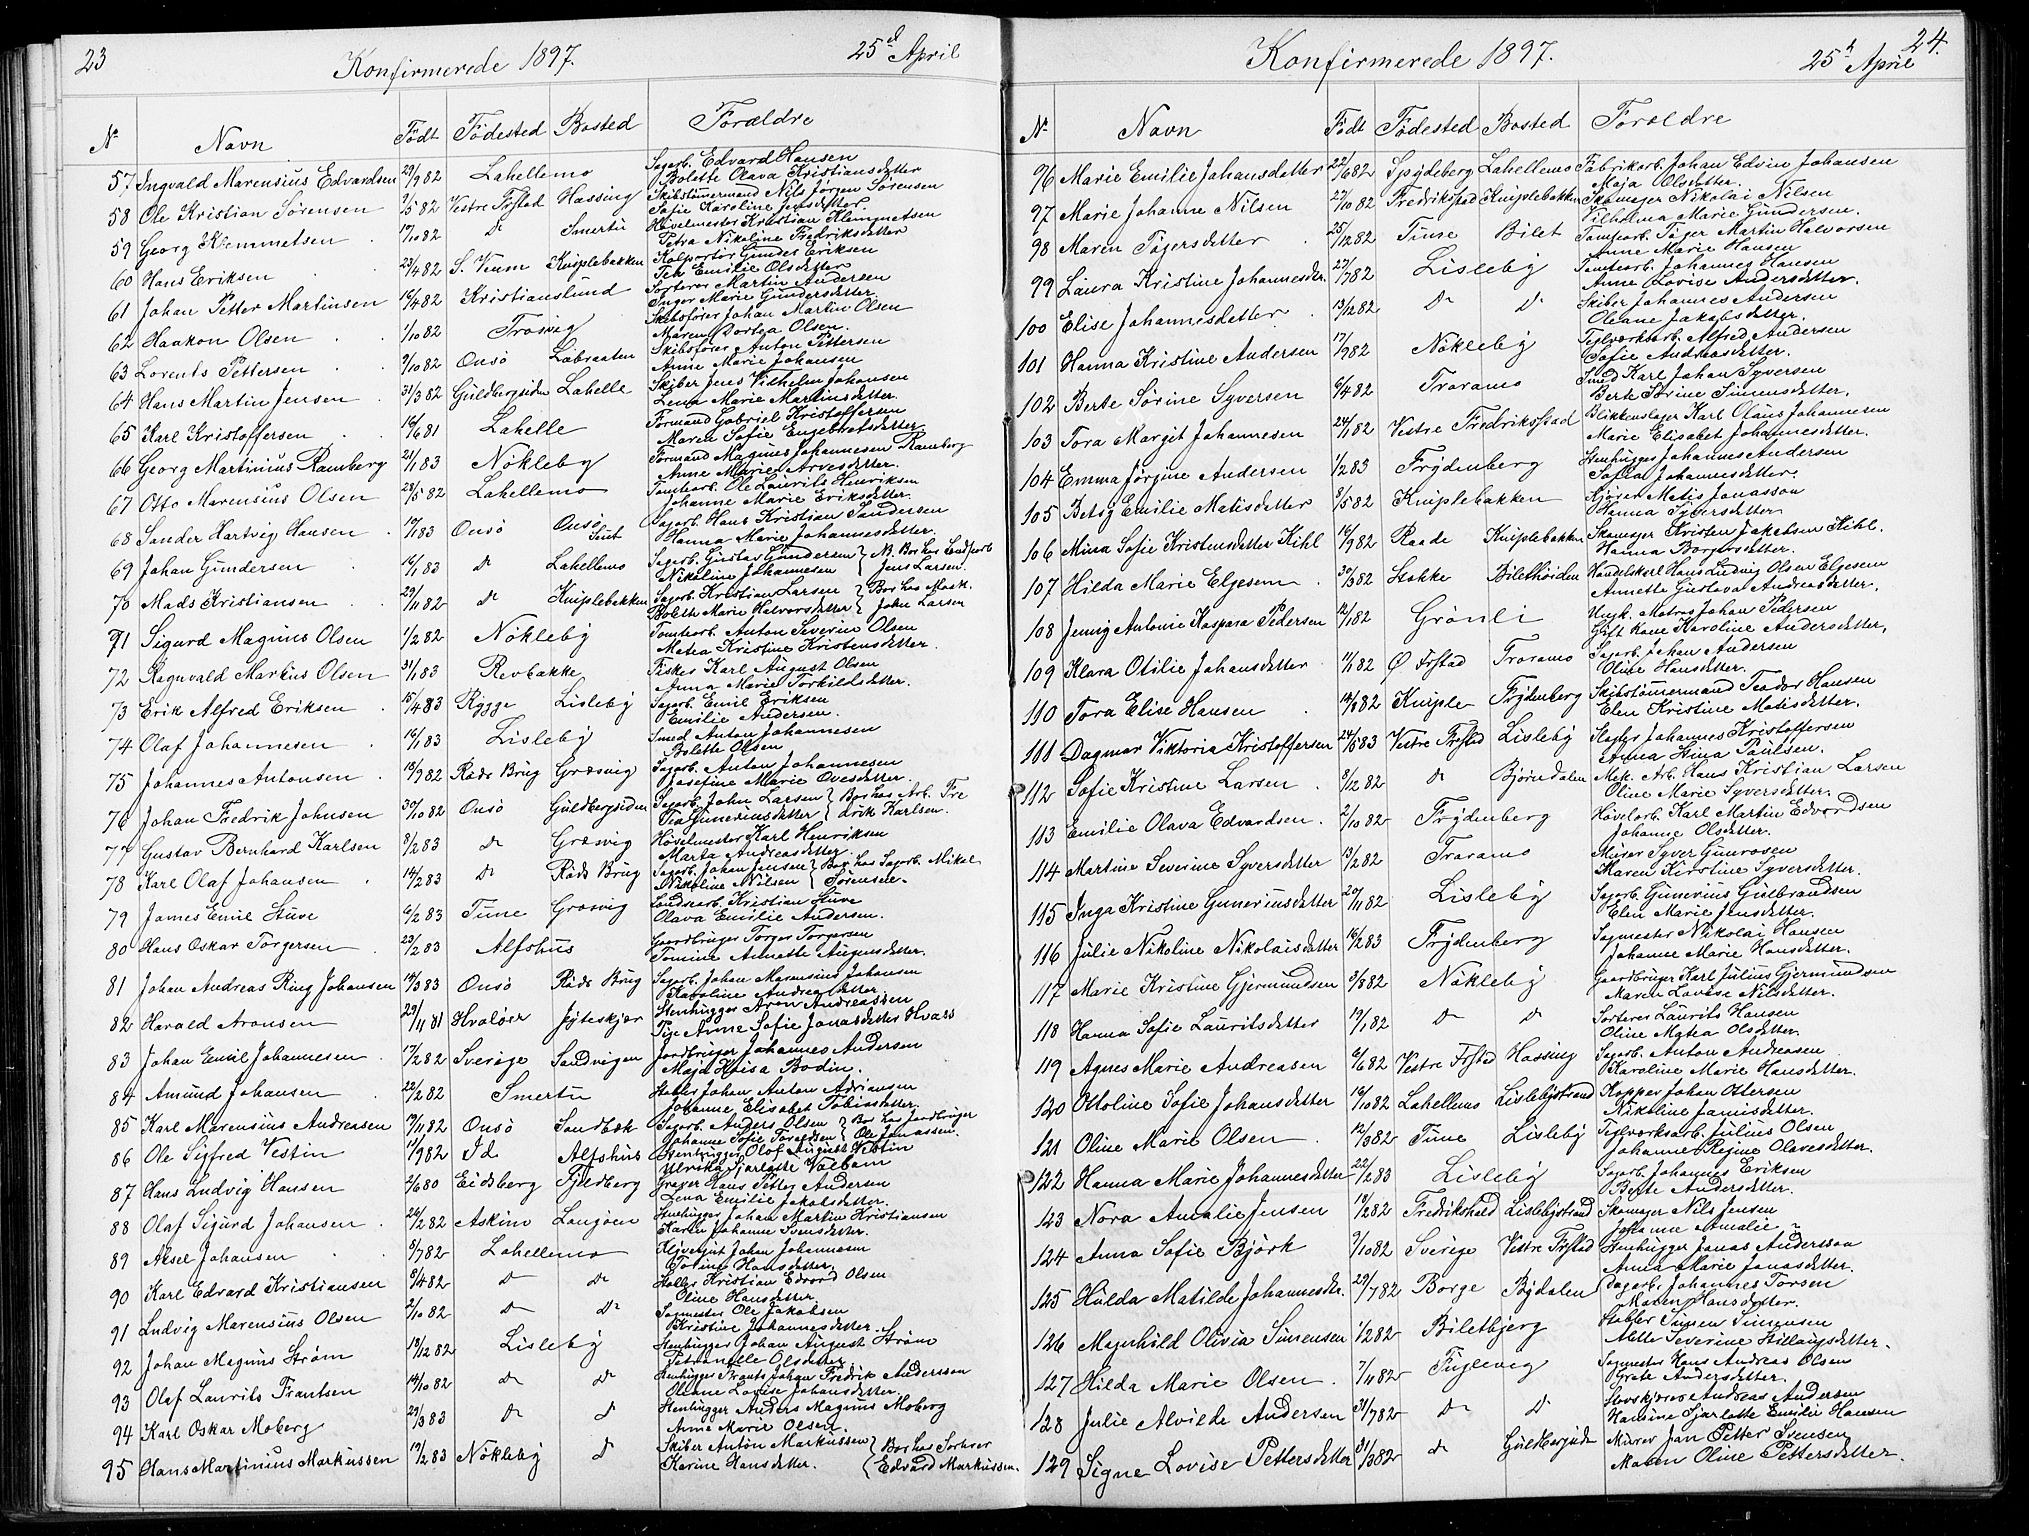 23
Konfirmerede 1897.
25d April
No Navn Født Fødested Bosted Forældre
57 Ingvald Marensius Edvardsen 29/9 82 Lahellemo Sagarb. Edvard Hansen
Bolette Olava Kristiansdetter
58 Ole Kristian Sørensen 9/5 82 Vestre Frstad Hassing Skibstømermand Nils Jørgen Sørensen
Sofie Karoline Jensdetter
59 Georg Klemmetsen 17/10 82 do Smertu Høvelmester Kristian Klemmetsen
Petra Nikoline Fredriksdetter
60 Hans Eriksen 23/4 82 Kniplebakken Kolportør Gunder Eriksen
Emilie Olsdetter
61 Johan Petter Martinsen 16/4 82 Kristianslund Sorterer Martin Andersen
Inger Marie Gundersdetter
62 Haakon Olsen 1/10 82 Trosvig Skibsfører Johan Martin Olsen
Maren Dortea Olsen.
63 Lorents Pettersen 9/10 82 Onsø Labraaten Skibsfører Anton Pettersen
Anne Marie Johansen
64 Hans Martin Jensen 31/3 82 Guldbergsiden Lahelle Skiber Jens Vilhelm Johansen
Lena Marie Martinsdetter.
65 Karl Kristoffersen 16/6 81 Lahelle Formand Gabriel Kristoffersen
Maren Sofie Engebretsdetter
66 Georg Martinius Ramberg 21/1 83 Nøkleby Formand Magnus Johannesen Ramberg
Anne Marie Arvesdetter.
67 Otto Marensius Olsen 28/5 82 Lahellemo Tomtearb. Ole Laurits Henriksen
Johanne Marie Eriksdetter.
68 Sander Hartvig Hansen 17/1 83 Onsø Onsø Sagarb. Hans Kristian Sandersen
Hanna Marie Johannesdetter.
69 Johan Gundersen 16/1 83 do Lahellemo Sagarb. Gustav Gundersen } N. Bor hos Landharb
Nikoline Johannesen { Jens Larsen.
70 Mads Kristiansen 29/11 82 do Kniplebakken Sagarb. Kristian Larsen } Bor hos Mask.
Bolette Marie Halvorsdetter { John Larsen
71 Sigurd Magnus Olsen 1/2 82 Nøkleby Tomtearb. Anton Severin Olsen
Matea Kristine Kristensdetter.
72 Ragnvald Markus Olsen 31/1 83 Revbakke Fisker Karl August Olsen
Anna Marie Torkildsdetter.
73 Erik Alfred Eriksen 15/4 83 Rygge Lisleby Sagarb. Emil Eriksen
Emilie Andersen.
74 Olaf Johannesen 16/1 83 Lisleby Smed Anton Johannesen
Bolette Olsen
75 Johannes Antonsen 13/9 82 Røds Brug Græsvig Sagarb. Anton Johannesen
Josefine Marie Ovesdetter.
76 Johan Fredrik Johnsen 30/10 82 Onsø Guldbergsiden Sagarb. John Larsen } Bor hos Arb. Fre
Tea Gineriusdetter { drik Karlsen.
77 Gustav Bernhard Karlsen 8/2 83 do Græsvig Høvelmester Karl Henriksen
Marta Andreasdetter.
78 Karl Olaf Johansen 14/2 83 do Røds Brug Sagarb. Johan Jensen } Bor hos Sagarb. Mikal
Nikoline Nilsen { Sørensen.
79 James Emil Stuve 6/2 83 Tune Græsvig Landarb. Kristian Stuve
Olava Emilie Andersen.
80 Hans Oskar Torgersen 23/2 83 Alfshus Gaardbruger Torger Torgersen
Tomine Annette Augensdetter.
81 Johan Andreas Ring Johansen 14/3 83 Onsø Røds Brug Sagarb. Johan Marensius Johansen
Karoline Andreasdetter
82 Harald Aronsen 29/11 81 Hvaløer Jyteskjær Stenhugger Aron Andreassen
Pige Anne Sofie Jonasdetter Hvass
83 Johan Emil Johannesen 17/2 82 Sverige Sandvigen Jordbruger Johannes Andersen
Maja Kaisa Bodin.
84 Amund Johansen 22/2 82 Smertu Johan Anton Adriansen
Johanne Elisabet Tobiasdetter
85 Karl Marensius Andreasen 19/11 82 Onsø Sandbæk Sagarb. Anders Olsen } Bor hos Jordbruger
Johanne Sofie { Ole Jonassen.
86 Ole Sigfred Vestin 11/9 82 Id. Alfshus Stenhugger Olof August Vestin
Ulrika Sjarlotte Valbom
87 Hans Ludvig Hansen 2/6 80 Eidsberg Fjeldberg Graver Hans Petter Andersen
Lena Emilie Jakobsdetter.
88 Olaf Sigurd Johansen 26/2 82 Askim Langøen Stenhugger Johan Martin Kristiansen
Karen Johanne Svensdetter.
89 Aksel Johansen 8/7 82 Lahellemo Johan Johannesen
Torine Hansdetter.
90 Karl Edvard Kristiansen 9/4 82 do do Høvler Kristian Edvard Olsen
Oline Hansdetter
91 Ludvig Marensius Olsen 2/10 82 do do Sagmester Ole Jakobsen
Kristine Johannesdetter
92 Johan Magnus Strøm 13/12 82 Lisleby Stenhugger Johan August Strøm
Petronelle Olsdetter
93 Olaf Laurits Frantsen 14/10 82 do do Stenhugger Frants Johan Fredrik Andersson
Oleane Lovise Johansdetter
94 Karl Oskar Moberg 29/3 83 do do Stenhugger Anders Magnus Moberg
Anne Marie Olsen.
95 Hans Martinius Markussen 19/2 83 Nøkleby do Skiber Anton Markussen } Bor hos Sorterer
Karine Hansdetter. { Edvard Markussen.
24.
Konfirmerede 1897.
25d April
No Navn Født Fødested Bosted Foreldre
96 Marie Emilie Johansdetter 22/6 82 Spydeberg Lahellemo Fabrikarb. Johan Edvin Johansen
Maja Olsdetter.
97 Marie Johanne Nilsen 27/10 82 Fredrikstad Kniplebakken Skomager Nikolai Nilsen
Vilhelma Marie Gundersen.
98 Maren Tøgersdetter 25/12 82 Tune Bilet Tomtearb. Tøger Martin Halvorsen
Anne Marie Hansen
99 Laura Kristine Johannesdtr. 27/7 82 Lisleby Tomtearb. Johannes Hansen
Anne Lovise Andersdetter.
100 Elise Johannesdetter 13/12 82 do do Skiber Johannes Andersen
Oleane Jakobsdetter.
101 Hanna Kristine Andersen 17/9 82 Nøkleby Teglværksarb. Alfred Andersen
Sofie Andreasdetter.
102 Berte Sørine Syversen 6/4 82 Traramo Smed Karl Johan Syversen
Berte Sørine Simensdetter.
103 Tora Margit Johannesen 24/1 82 Vestre Fredriksstad Blikkenslager Karl Olaus Johannesen
Marie Elisabet Johannesdetter.
104 Emma Jørgine Andersen 1/2 83 Frydenberg Stenhugger Johannes Andersen
Sofia Johannesdetter.
105 Betsy Emilie Matisdetter 8/5 82 Kniplebakken Kjører Matis Jonasson
Hanna Syversdetter
106 Mina Sofie Kristensdetter Kihl 16/9 82 Raade Kniplebakken Skomager Kristen Jakobsen Kihl.
Hanna Borgersdetter.
107 Hilda Marie Elgesem 30/3 82 Stokke Bilethøiden Handelskarl Hans Ludvig Olsen Elgesem
Annette Gustava Andreasdetter.
108 Jenny Antonie Kaspara Pedersen 12/1 82 Grønli Ungk. Matros Johan Pedersen
Gift Kone Karoline Andersdetter.
109 Klara Otilie Johansdetter 11/1 82 Ø. Frstad Traramo Sagarb. Johan Andersen
Oline Hansdetter.
110 Tora Elise Hansen 14/8 82 Kniple Frydenberg Skibstømermand Teodor Hansen
Elen Kristine Matisdetter.
111 Dagmar Viktoria Kristoffersen 24/6 83 Vestre Frstad Lisleby Johannes Kristoffersen
Anna Stina Paulsen.
112 Sofie Kristine Larsen 8/12 82 do Bjørndalen Mek. Arb. Hans Kristian Larsen
Oline Marie Syversdetter.
113 Emilie Olava Edvardsen 2/10 82 Frydenberg Høvelarb. Karl Martin Edvardsen
Johanne Olsdetter.
114 Martine Severine Syversdetter 13/2 82 Traramo Murer Syver Gunrosen
Maren Kirstine Syversdetter.
115 Inga Kristine Guneriusdetter 20/11 82 Lisleby Sagarb. Gunerius Gulbrandsen
Elen Marie Jensdetter.
116 Julie Nikoline Nikolaisdatter 16/2 83 Frydenberg Sagmester Nikolai Hansen
Johanne Marie Hansdetter.
117 Marie Kristine Gjermundsen 3/8 82 Nøkleby Gaardbruger Karl Julius Gjermundsen
Maren Lovise Nilsdetter.
118 Hanna Sofie Lauritsdetter 17/1 82 do do Sorterer Laurits Hansen
Oline Matea Olsdetter
119 Agnes Marie Andreasen 6/6 82 Vestre Frstad Hassing Sagarb. Anton Andreasen
Karoline Marie Hansdetter.
120 Ottoline Sofie Johansdetter 16/10 82 Lahellemo Lislebystrand Kopper Johan Ottersen
Nikoline Jansdetter.
121 Oline Marie Olsen 12/3 82 Tune Lisleby Teglværksarb. Julius Olsen
Johanne Regine Olavesdetter.
122 Hanna Marie Johannesdetter 22/2 83 Lisleby Sagarb. Johannes Eriksen
Berte Andersdetter.
123 Nora Amalie Jensen 19/2 82 Fredrikshald Lislebystrand Skomager Nils Jensen
Johanne Amalie ?
124 Anna Sofie Bjørk 9/10 82 Sverige Vestre Frstad Stenhugger Jonas Andersson
Anna Marie Jonasdetter.
125 Hulda Matilde Johannesdtr. 29/7 82 Borge Bydalen Dagarb. Johannes Torsen
Maren Hansdetter.
126 Magnhild Olivia Simensen 1/2 82 Biletbjerg Stabler Simen Simensen
Alette Severine
127 Hilda Marie Olsen 7/11 82 Fuglevig Sagmester Hans Andreas Olsen
Grete Andersdetter.
128 Julie Alvilde Andersen 31/7 82 do do Andreas Andersen
Hansine Sjarlotte Emilie Hansen
129 Signe Lovise Pettersdetter 31/3 82 do Murer Jan Petter Svensen
Maren Oline Pettersdetter.